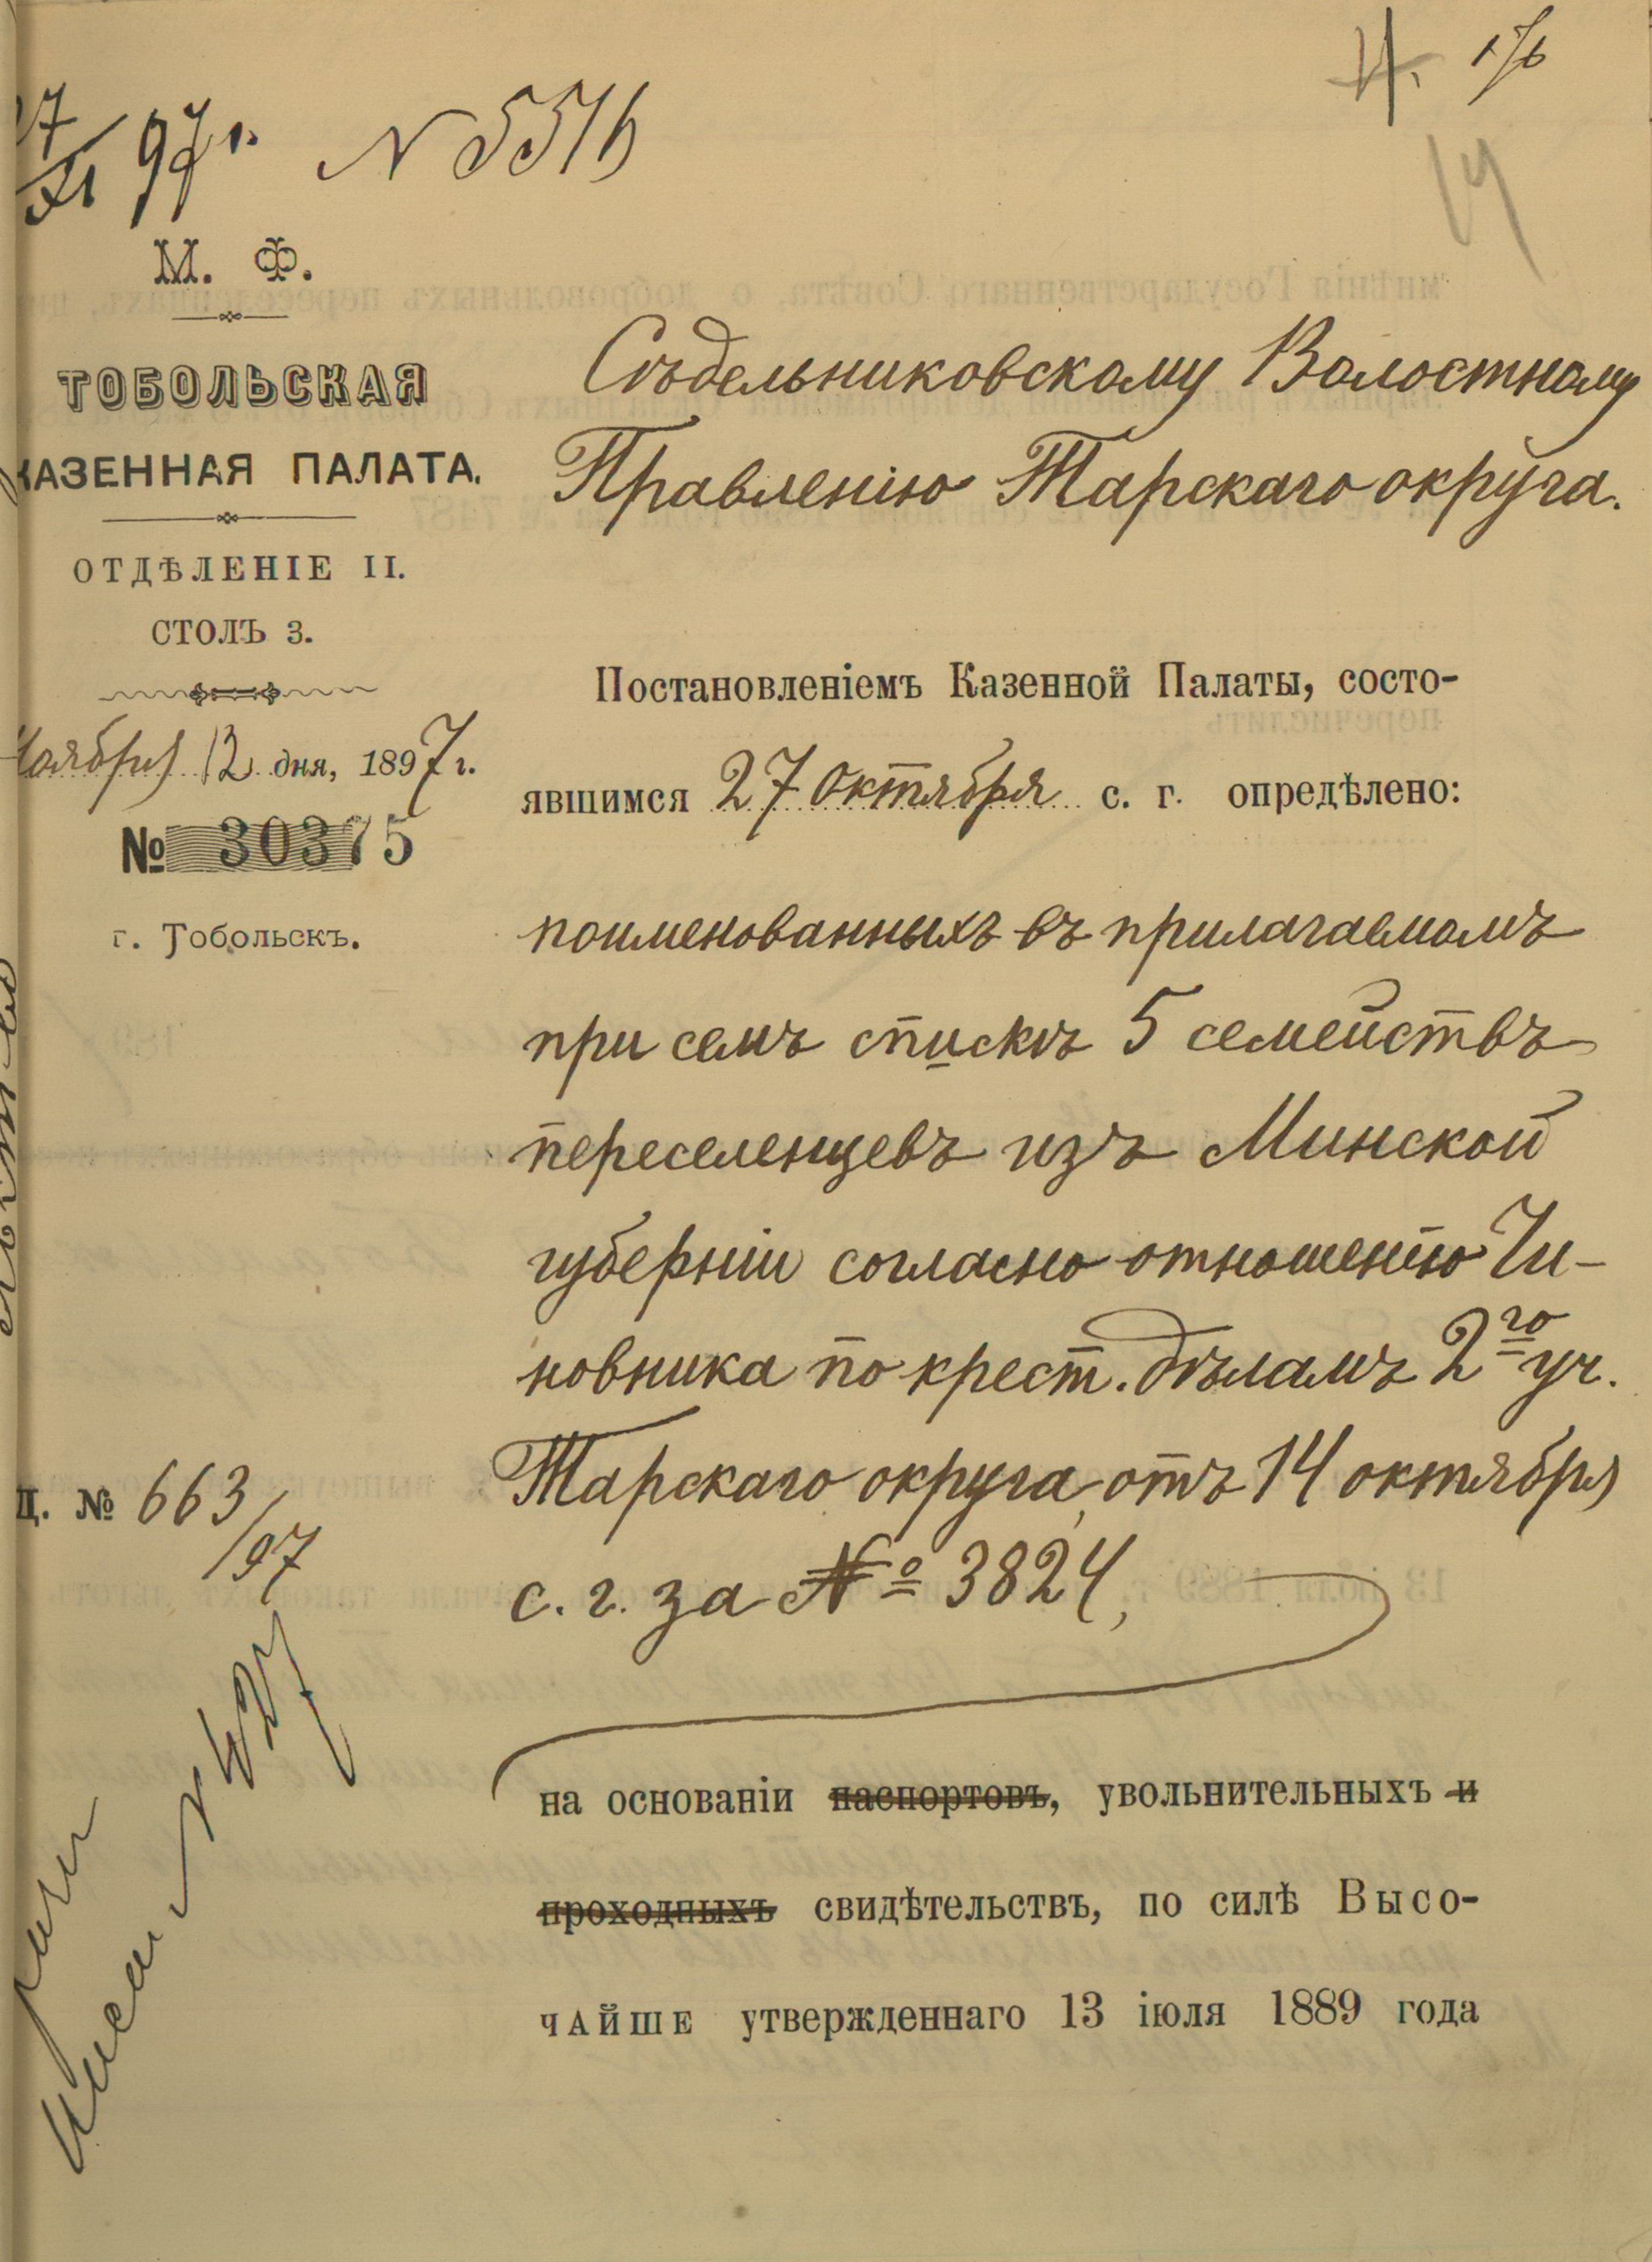 97 г. № 5516
М. Ф.
ТОБОЛЬСКАЯ
КАЗЕННАЯ ПАЛАТА.
ОТДѢЛЕНІЕ II.
СТОЛЪ 3.
Ноября 12 дня, 1897 г.
№ 30375
г. Тобольскъ.
Д. № 663/97
Сѣдельниковскому Волостному
Правленію Тарскаго округа.
Постановленіемъ Казенной Палаты, состо-
явшимся 27 Октября с. г. опредѣлено:
поименованныхъ въ прилагаемомъ
при семъ спискѣ 5 семействъ
переселенцевъ изъ Минской
губерніи согласно отношенію Чи-
новника по крест. дѣламъ 2го уч.
Тарскаго округа, отъ 14 октября
с. г. за № 3824,
на основаніи паспортовъ, увольнительныхъ и
проходныхъ свидѣтельствъ, по силѣ Высо-
ЧАЙШЕ утвержденнаго 13 іюля 1889 года